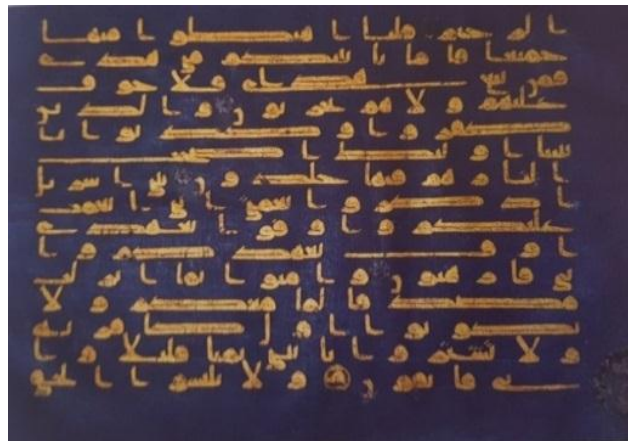 الرحيم قلنا اهبطوا منها
جميعا فاما ياتينكم مني هدى
فمن تبع هداي فلا خوف
عليهم ولا هم يحزنون والذين
كفروا وكذبوا بايا
تنا اولئك اصحب
النار هم فيها خلدون يبني اسر
يل اذكروا نعمتي التي انعمت
عليكم واوفوا بعهدي
اوف بعهدكم وا
يي فارهبون وامنوا بما انزلت
مصدقا لما معكم ولا
تكونوا اول كافر به
ولا تشتروا بايتي ثمنا قليلا وا
يي فاتقون ولا تلبسوا الحق